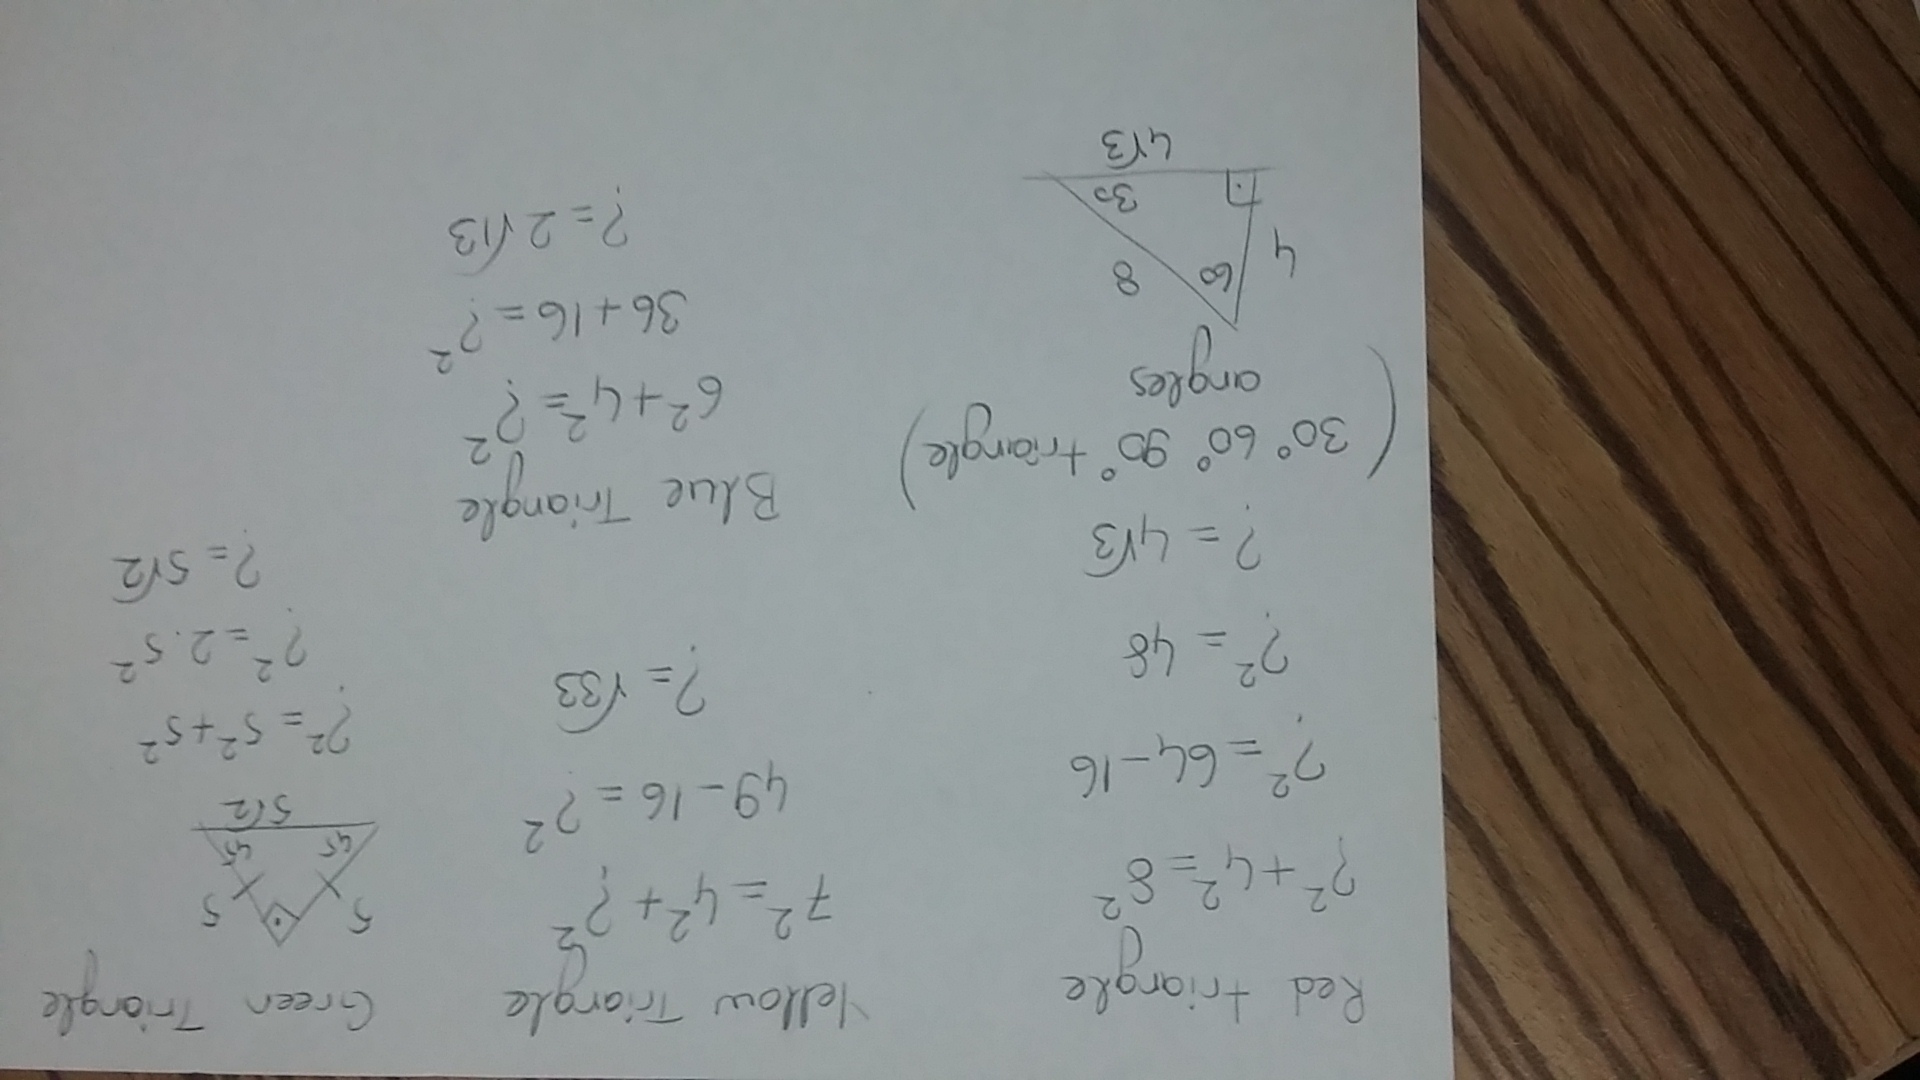 Red triangle
?² + 4² = 8²
?² = 64 - 16
?² = 48
? = 4√3
(30° 60° 90° triangle)
angles
60
4
8
30
4√3
Yellow Triangle
7² = 4² + ?²
49 - 16 = ?²
? = √33
Blue Triangle
6² + 4² = ?²
36 + 16 = ?²
? = 2√13
Green Triangle
5 5
45 45
5√2
?² = 5² + 5²
?² = 2.5²
? = 5√2